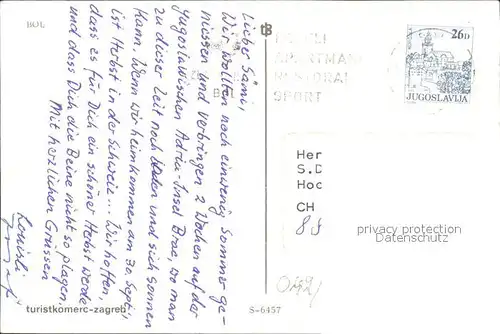 BOL
Lieber Sämi,
Wir wollen noch einwenig Sommer ge-
niessen und verbringen 2 Wochen auf der
jugoslawischen Adria-Insel Brac, wo man
zu dieser Zeit noch baden und sich sonnen
kann. Wenn wir heimkommen am 30. Sept.,
ist Herbst in der Schweiz... Wir hoffen,
dass es für Dich ein schöner Herbst werde
und dass Dich die Beine nicht so plagen.
Mit herzlichen Grüssen
turistkomerc-zagreb
S-6457
tB
APARTMANI
SPORT
BOL
26D
JUGOSLAVIJA
Her
S.D
Hoc
CH
88
privacy protection
Datenschutz